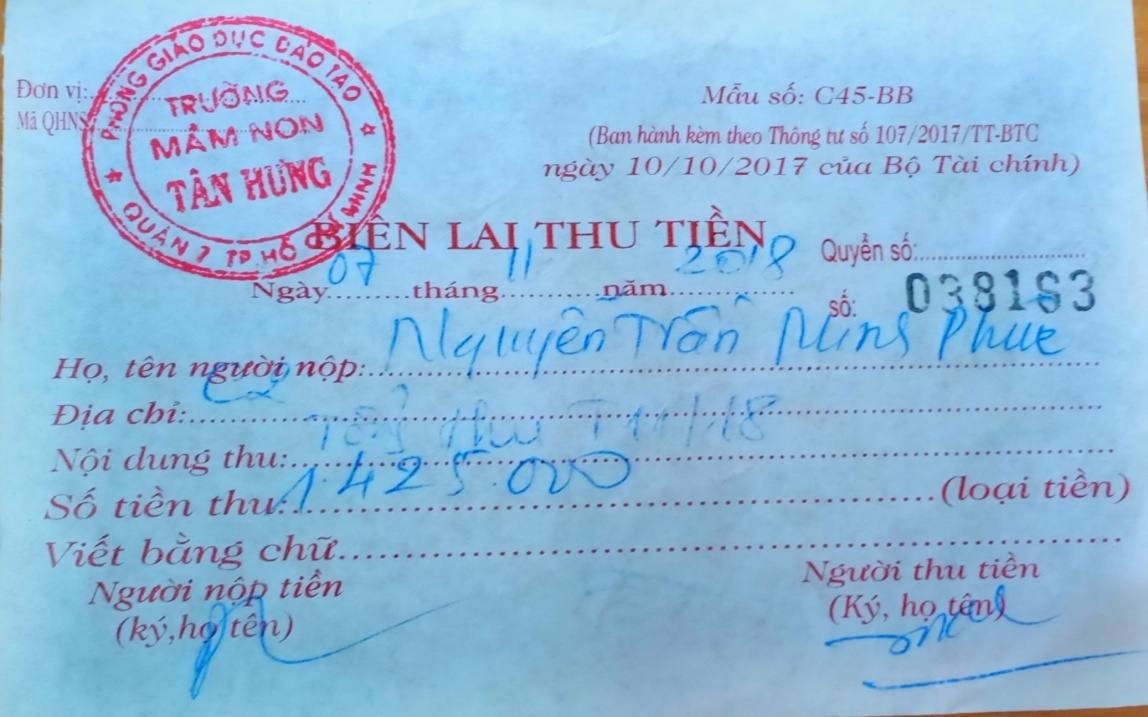 PHÒNG GIÁO DỤC ĐÀO TẠO
QUẬN 7 TP. HỒ CHÍ MINH
TRƯỜNG
MẦM NON
TÂN HƯNG
Đơn vị:
Mã QHNS
Mẫu số: C45-BB
(Ban hành kèm theo Thông tư số 107/2017/TT-BTC
ngày 10/10/2017 của Bộ Tài chính)
BIÊN LAI THU TIỀN
Quyển số:
Ngày 07 tháng 11 năm 2018
số: 038163
Họ, tên người nộp: Nguyễn Trần Minh Phúc
Địa chỉ:
Nội dung thu: Tổng thu T11/18
Số tiền thu: 1.425.000 (loại tiền)
Viết bằng chữ
Người nộp tiền
(ký,họ tên)
Người thu tiền
(Ký, họ tên)